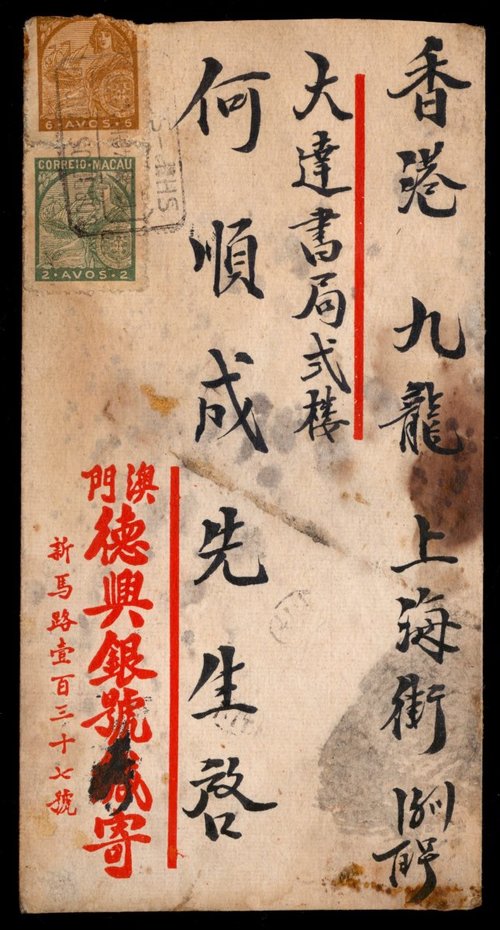 香港 九龍 上海街
大達書局弍樓
何順成先生啓
澳門
德興銀號
寄
新馬路壹百三十七號
6·AVOS·5
CORREIO·MACAU
2·AVOS·2